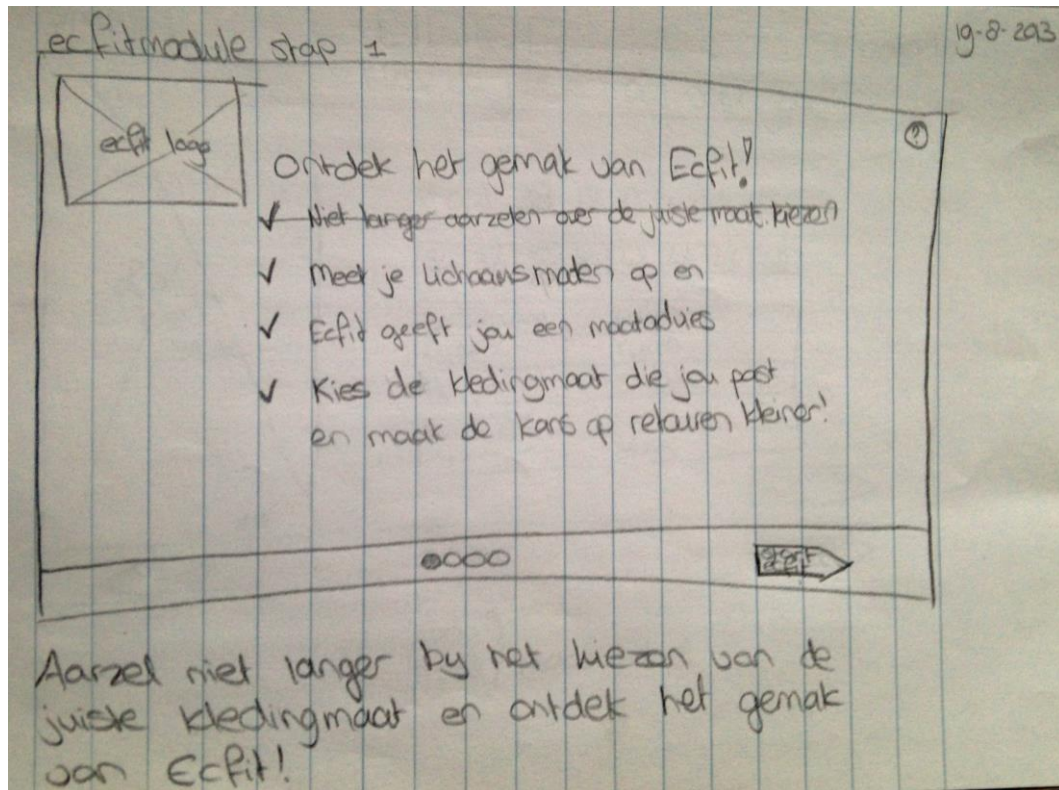 ecfitmodule stap 1
19-8-2013
ecfit logo
?
Ontdek het gemak van Ecfit!
✓ Niet langer aarzelen over de juiste maat kiezen
✓ Meet je lichaamsmaten op en
✓ Ecfit geeft jou een maatadvies
✓ Kies de kledingmaat die jou past
en maak de kans op retouren kleiner!
start
Aarzel niet langer by het kiezen van de
juiste kledingmaat en ontdek het gemak
van Ecfit!